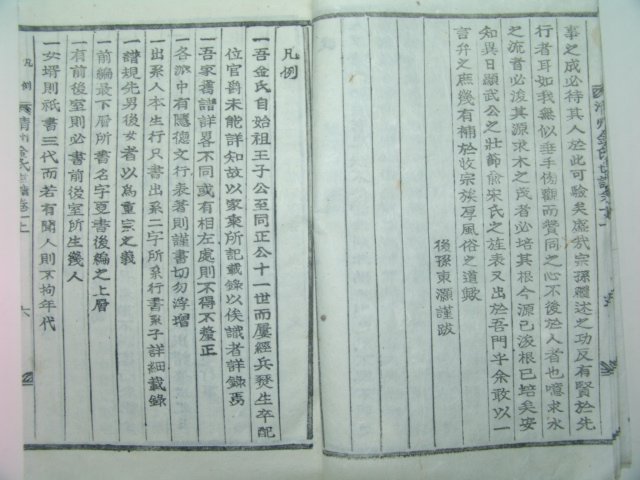 事之成必待其人於此可驗矣處我宗孫體述之功反有賢於先
行者耳如我無似垂手傍觀而贊同之心不後於人者也噫求水
之流者必浚其源求木之茂者必培其根今源已浚根已培矣安
知異日顯武公之壯節兪宋氏之旌表又出於吾門乎余敢以一
言弁之庶幾有補於收宗族厚風俗之道歟
後孫東灝謹跋
凡例
一吾金氏自始祖王子公至同正公十一世而屢經兵燹生卒配
位官爵未能詳知故以家乘所記載錄以俟識者詳錄焉
一吾家舊譜詳畧不同或有相左處則不得不釐正
一各派中有隱德文行表著則謹書切勿浮增
一出系人本生行只書出系二字所系行書系子詳細載錄
一譜規先男後女者以爲重宗之義
一前編最下層所書名字更書後編之上層
一有前後室則必書前後室所生幾人
一女壻則祇書三代而若有聞人則不拘年代
凡例 淸州金氏世譜卷 上 六